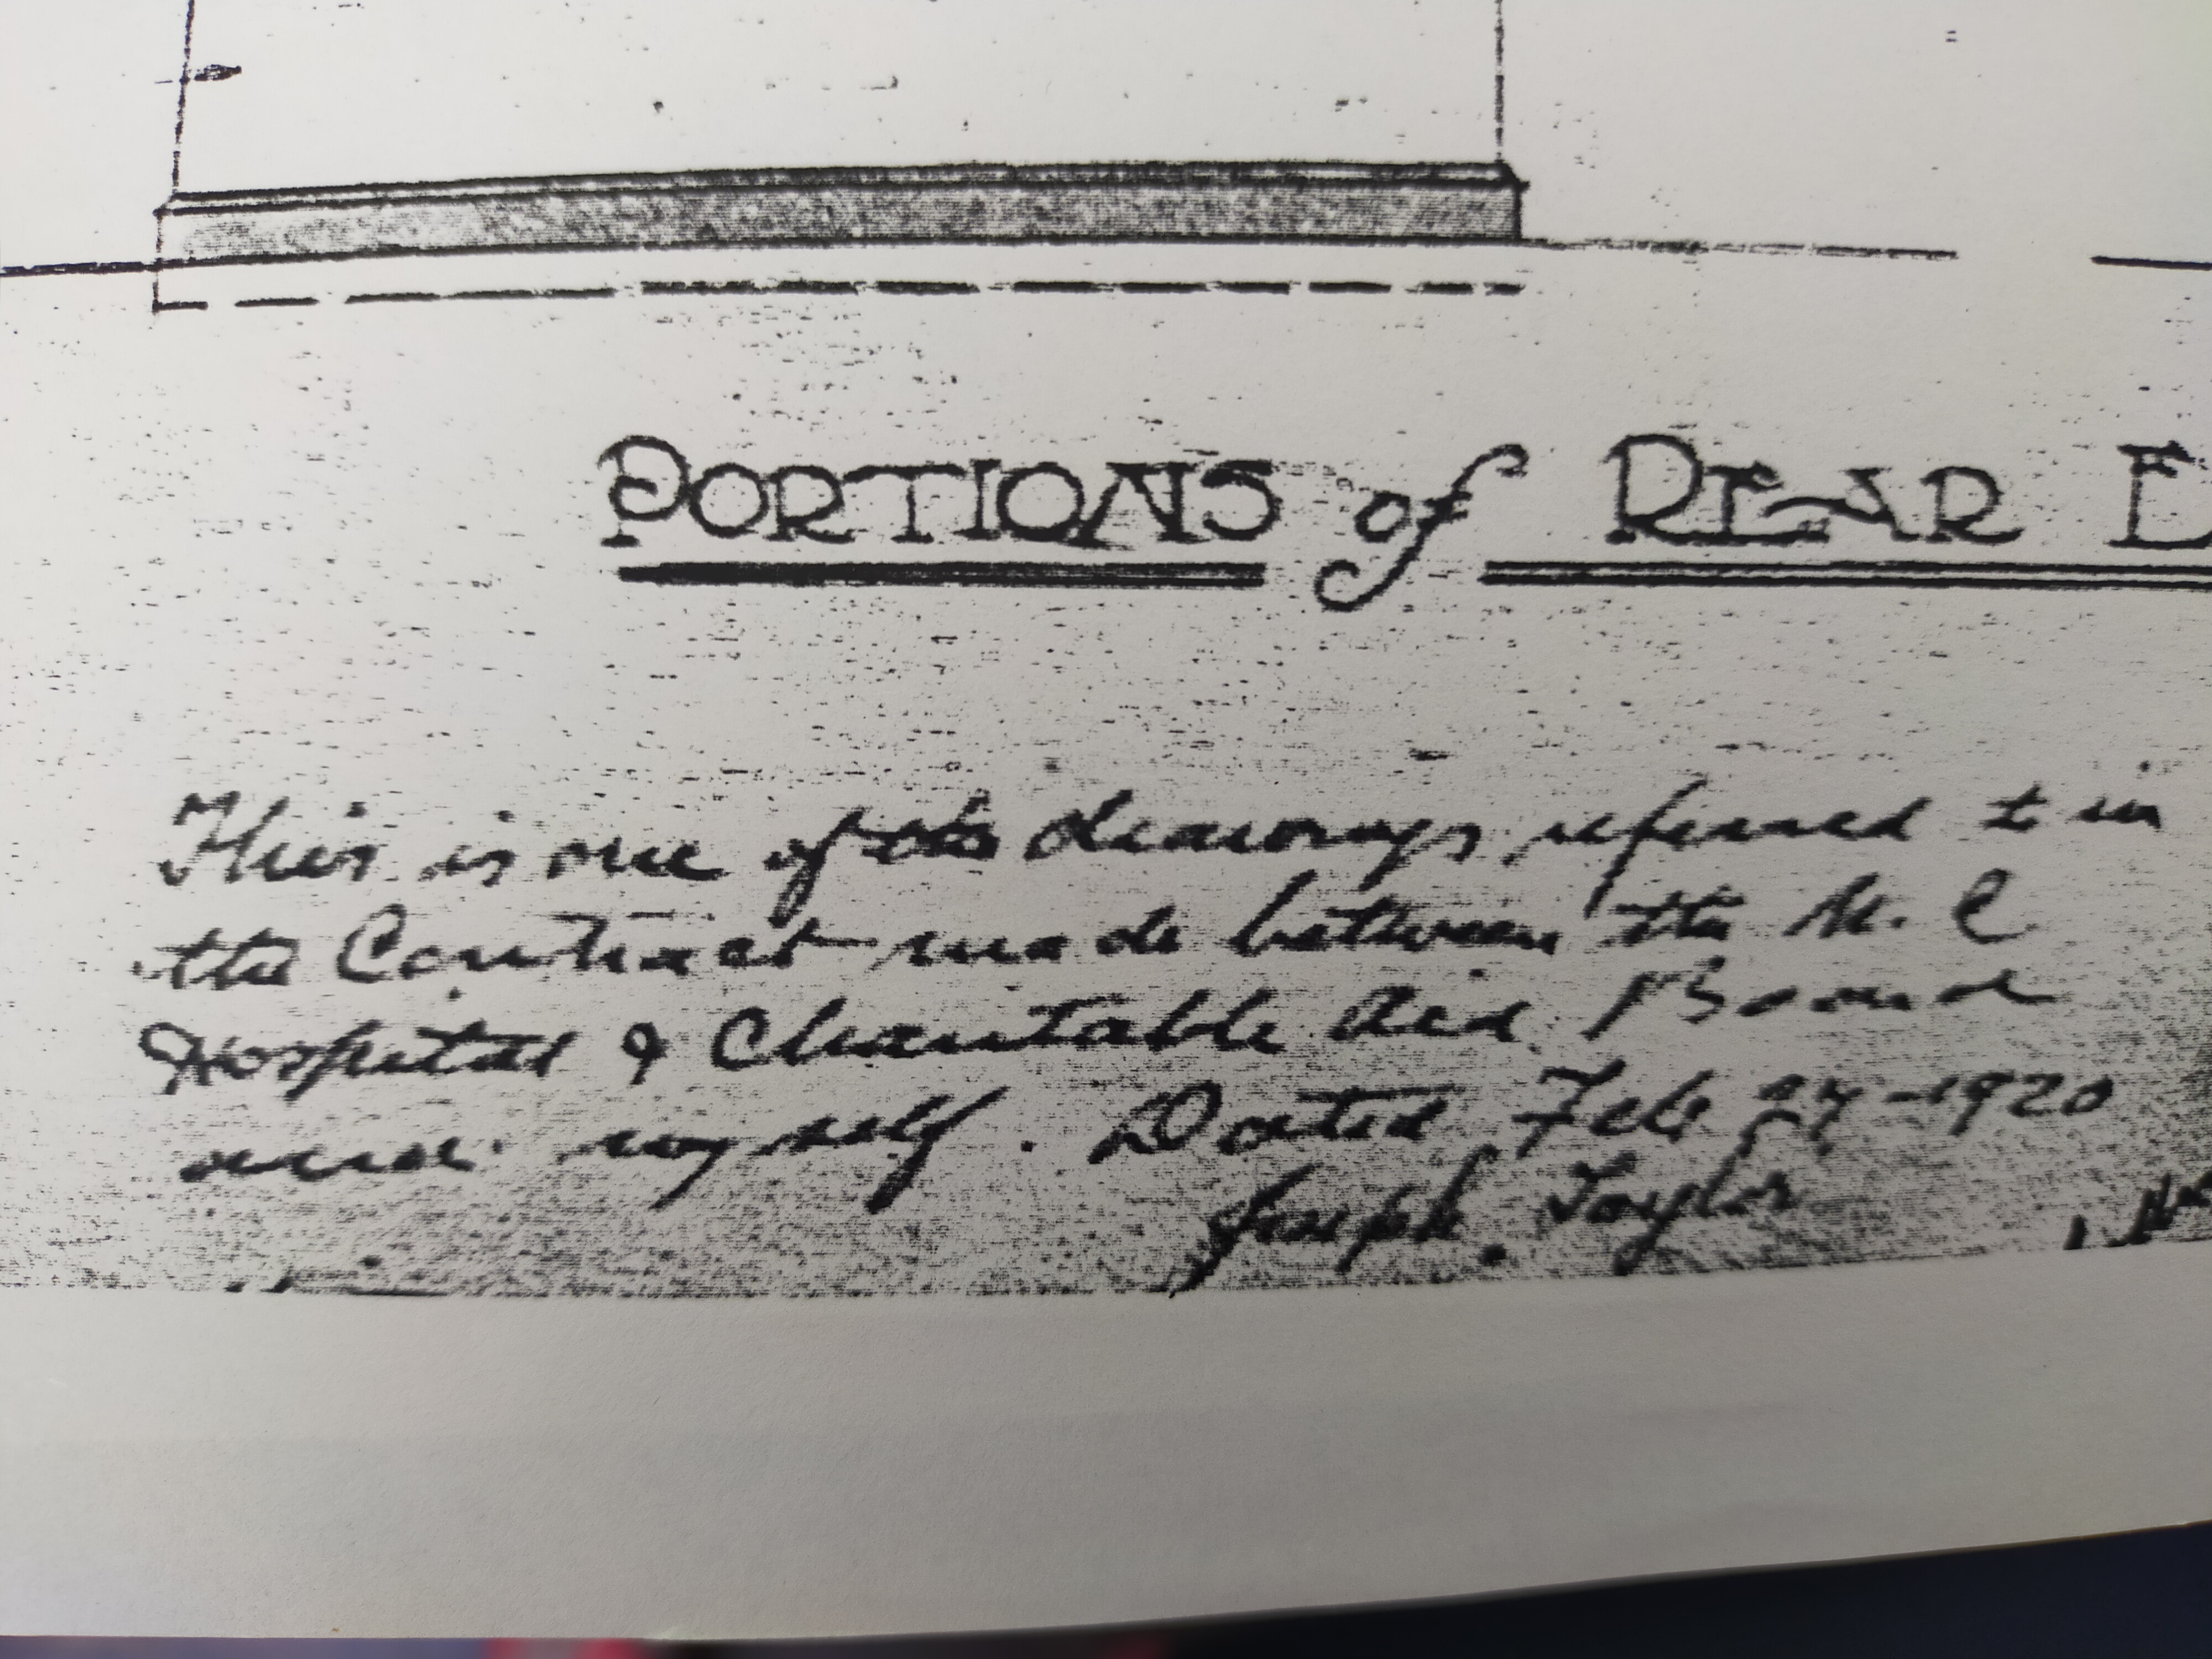 PORTIONS of REAR E
This is one of the drawings referred to in
the Contract made between the N. C
Hospital & Charitable Aid Board
and myself. Dated Feb 27-1920
Joseph Taylor